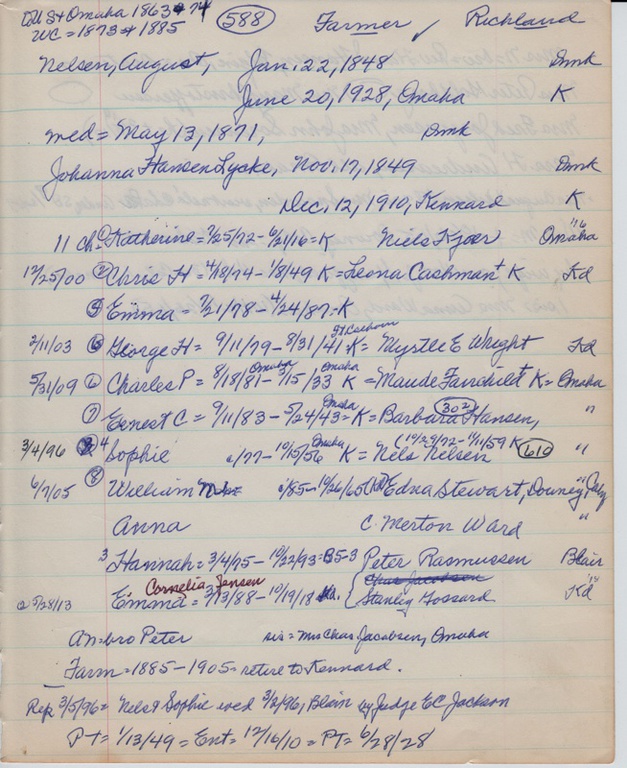 to US + Omaha 1863 + 74 (588) Farmer ✓ Richland
WC = 1873 + 1885
Nelsen, August, Jan. 22, 1848 Dmk
June 20, 1928, Omaha K
med = May 13, 1871, Dmk
Johanna Hansen Lycke, Nov. 17, 1849 Dmk
Dec. 12, 1910, Kennard K
11 ch. ① Katherine = 7/25/72 - 6/21/16 = K Niels Kjoer Omaha '16
12/25/00 ② Chris H = 4/18/74 - 1/8/49 K = Leona Cashman + K Kd
Emma = 7/21/78 - 4/24/87 = K
2/11/03 George H = 9/11/79 - 8/31/41 K = Myrtle E Wright Kd
Ft Calhoun
5/31/09 ⑥ Charles P = 8/18/81 - 3/15/33 K = Maude Fairchild + K = Omaha
Omaha Omaha
⑦ Ernest C = 9/11/83 - 5/24/43 = K = Barbara Hansen, "
Omaha (302)
3/4/96 4 Sophie /77 - 10/15/56 K = Nels Nelsen (610) "
Omaha (10/29/72 - 1/11/59 K
6/7/05 ⑧ William /85 - 10/26/65 Edna Stewart, Downey, "
Anna C. Merton Ward "
3 Hannah = 3/4/75 - 10/22/93 = B5-3 Peter Rasmussen Blair
Cornelia Jensen Chas Jacobsen
5/28/13 Emma = 3/13/88 - 10/19/18 { Stanley Fossard Kd
An = bro Peter sis = Mrs Chas. Jacobsen, Omaha
Farm = 1885 - 1905 = retire to Kennard.
Rep 3/5/96 = Nels + Sophie wed 3/2/96, Blair by Judge EC Jackson
PT = 1/13/49 = Ent = 12/16/10 = PT = 6/28/28